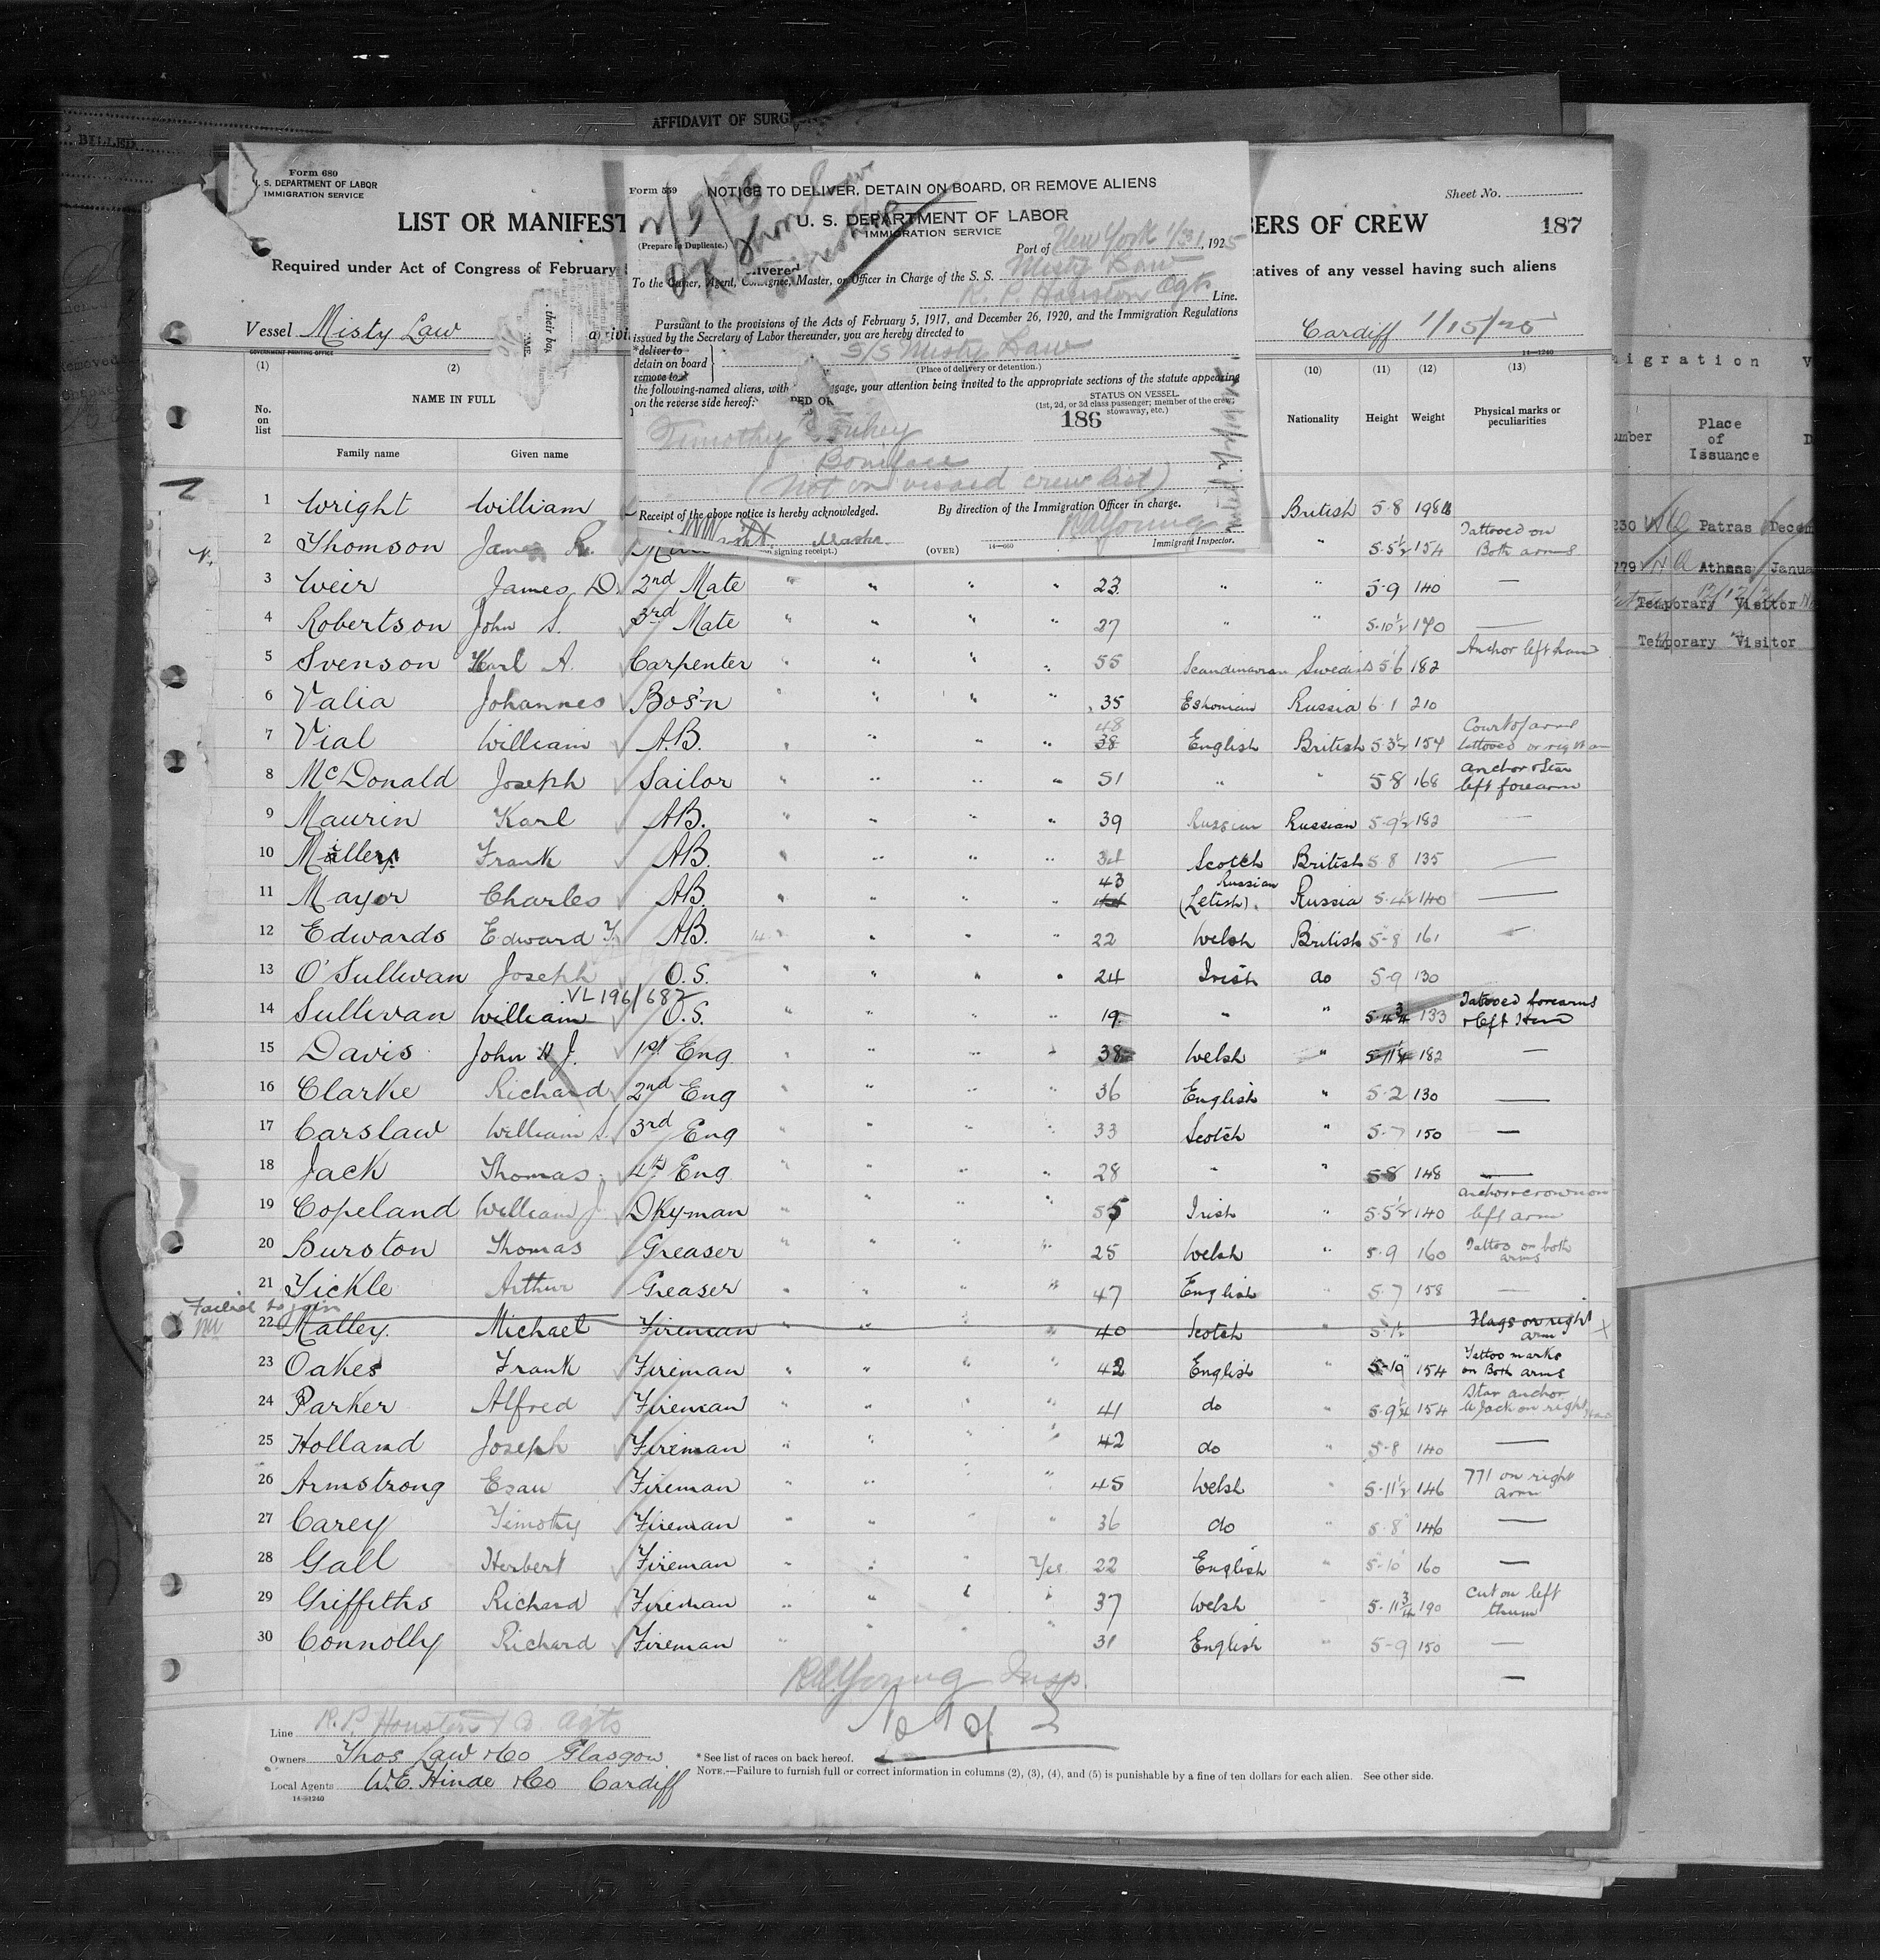 AFFIDAVIT OF SURG
BILLED
Form 680
U. S. DEPARTMENT OF LABOR
IMMIGRATION SERVICE
LIST OR MANIFEST
BERS OF CREW
Sheet No.
187
Required under Act of Congress of February
tatives of any vessel having such aliens
Vessel Misty Law
Cardiff 1/15/25
GOVERNMENT PRINTING OFFICE
14—1240
Form 559
NOTICE TO DELIVER, DETAIN ON BOARD, OR REMOVE ALIENS
U. S. DEPARTMENT OF LABOR
IMMIGRATION SERVICE
(Prepare in Duplicate.)
Port of New York 1/31, 1925
To the Owner, Agent, Consignee, Master, or Officer in Charge of the S. S. Misty Law
R. P. Houston Agts Line.
Pursuant to the provisions of the Acts of February 5, 1917, and December 26, 1920, and the Immigration Regulations
issued by the Secretary of Labor thereunder, you are hereby directed to
*deliver to
detain on board
remove to
S/S Misty Law
(Place of delivery or detention.)
the following-named aliens, with gage, your attention being invited to the appropriate sections of the statute appearing
on the reverse side hereof:
STATUS ON VESSEL
(1st, 2d, or 3d class passenger; member of the crew;
stowaway, etc.)
186
Timothy
Boniface
(Not on visaed crew list)
Receipt of the above notice is hereby acknowledged.
By direction of the Immigration Officer in charge.
RAYoung
Master
on signing receipt.)
(OVER)
14—660
Immigrant Inspector.
(1) (2) (10) (11) (12) (13)
No. on list
NAME IN FULL
Family name Given name
Nationality Height Weight Physical marks or peculiarities
1 Wright William British 5-8 198
2 Thomson James R. " 5-5½ 154 Tattooed on Both arms
3 Weir James D. 2nd Mate " " " 23 " " 5-9 140 —
4 Robertson John S. 3rd Mate " " " 27 " " 5-10½ 170 —
5 Svenson Karl A. Carpenter " " " 55 Scandinavian Swedis 5'6 182 Anchor left hand
6 Valia Johannes Bos'n " " " 35 Eshonian Russia 6-1 210
7 Vial William A.B. " " " 48 38 English British 5-3½ 154 Court of arms tattooed on right arm
8 McDonald Joseph Sailor " " " 51 " " 5-8 168 anchor & Star left forearm
9 Maurin Karl AB. " " " 39 Russian Russian 5-9½ 182 —
10 Millers Frank AB. " " " 34 Scotch British 5 8 135 —
11 Mayor Charles AB. " " " 43 44 Russian (Letish) Russia 5-4½ 140 —
12 Edwards Edward T. AB. " " " 22 Welsh British 5-8 161 —
13 O'Sullivan Joseph O.S. " " " 24 Irish do 5-9 130
VL 196/687
14 Sullivan William O.S. " " " 19 " " 5-4¾ 133 Tatooed forearms & left Hand
15 Davis John H J. 1st Eng. " " " 38 Welsh " 5-11¼ 182 —
16 Clarke Richard 2nd Eng " " " 36 English " 5-2 130 —
17 Carslaw William S. 3rd Eng " " " 33 Scotch " 5-7 150 —
18 Jack Thomas 4th Eng. " " " 28 " " 5-8 148 —
19 Copeland William J Dkyman " " " 55 Irish " 5-5½ 140 anchor & crown on left arm
20 Burston Thomas Greaser " " " 25 Welsh " 5-9 160 Tattoo on both arms
21 Tickle Arthur Greaser " " " 47 English 5-7 158 —
Failed to join
22 Malley Michael Fireman " " " 40 Scotch " 5-1½ Flags on right arm X
23 Oakes Frank Fireman " " " 42 English " 5-10 154 Tattoo marks on Both arms
24 Parker Alfred Fireman " " " 41 do " 5-9¼ 154 Star anchor U Jack on right hand
25 Holland Joseph Fireman " " " 42 do " 5-8 140 —
26 Armstrong Esau Fireman " " " 45 Welsh " 5-11½ 146 771 on right arm
27 Carey Timothy Fireman " " " 36 do " 5-8 146 —
28 Gall Herbert Fireman " " " Yes 22 English " 5-10 160 —
29 Griffiths Richard Fireman " " " 37 Welsh " 5-11¾ 190 Cut on left thum
30 Connolly Richard Fireman " " " 31 English " 5-9 150 —
RAYoung Insp.
Line R.P. Houston & Co Agts
Owners Thos Law & Co Glasgow
Local Agents W.E. Hinde & Co Cardiff
14-1240
*See list of races on back hereof.
NOTE.—Failure to furnish full or correct information in columns (2), (3), (4), and (5) is punishable by a fine of ten dollars for each alien. See other side.
migration V
umber Place of Issuance D
230 Patras Decem
779 Athens Janua
Temporary Visitor
Temporary Visitor